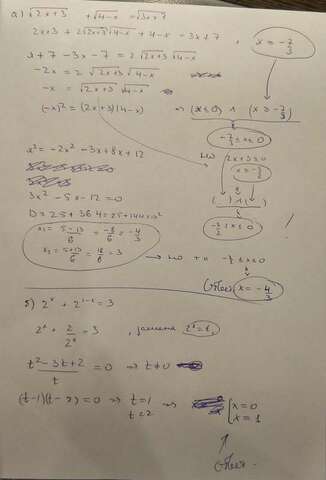 а) √2x+3 + √4-x = √3x+7
2x+3 + 2√2x+3 √4-x + 4-x = 3x+7 , x ≥ -7/3
x+7 - 3x - 7 = 2 √2x+3 √4-x
-2x = 2 √2x+3 √4-x
-x = √2x+3 √4-x
(-x)² = (2x+3)(4-x) ⇒ (x ≤ 0) ∧ (x ≥ -7/3)
-7/3 ≤ x ≤ 0
но 2x+3 ≥ 0
x ≥ -3/2
x² = -2x² - 3x + 8x + 12
( ) ∧ ( )
3x² - 5x - 12 = 0
-3/2 ≤ x ≤ 0 !
D = 25 + 36·4 = 25 + 144 = 13²
x₁ = 5-13/6 = -8/6 = -4/3
x₂ = 5+13/6 = 18/6 = 3 → но т.к. -3/2 ≤ x ≤ 0
Ответ x = -4/3
б) 2ˣ + 2¹⁻ˣ = 3
2ˣ + 2/2ˣ = 3 , замена 2ˣ = t,
t² - 3t + 2/t = 0 ⇒ t ≠ 0
(t-1)(t-2) = 0 ⇒ t = 1 ⇒ x = 0
t = 2 x = 1
Ответ.